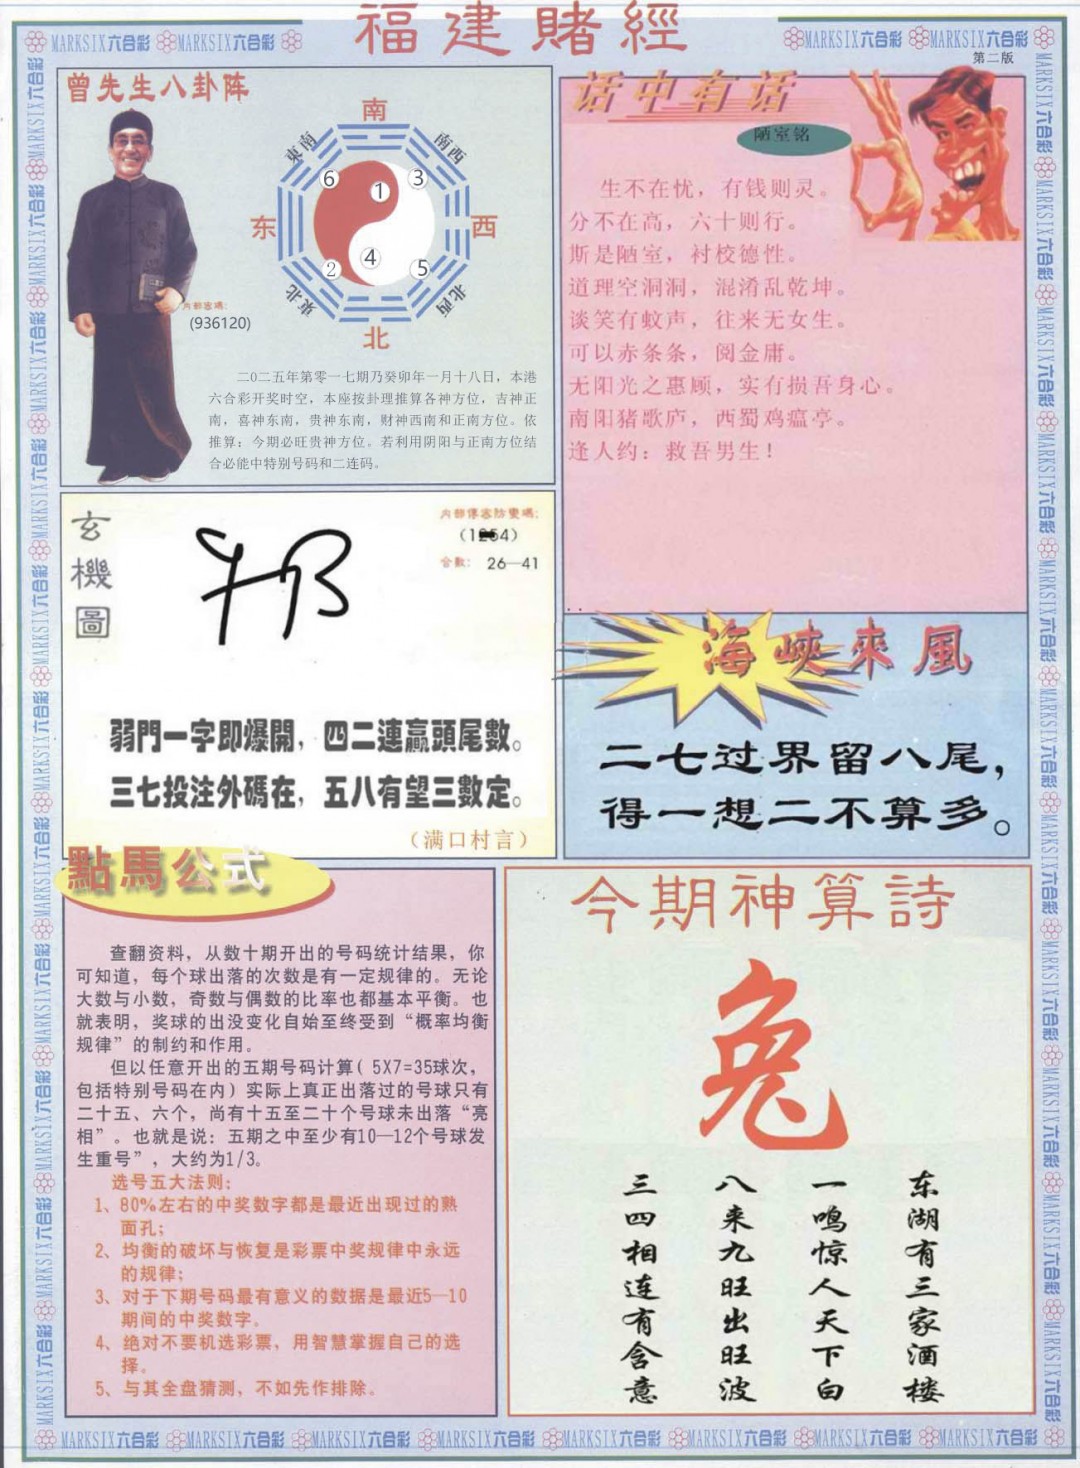 福建賭經
MARKSIX六合彩 MARKSIX六合彩
MARKSIX六合彩 MARKSIX六合彩
第二版
曾先生八卦阵
南
東南
南西
6
1
3
东
西
2
4
5
東北
北西
北
内部密碼:
(936120)
二〇二五年第零一七期乃癸卯年一月十八日，本港
六合彩开奖时空，本座按卦理推算各神方位，吉神正
南，喜神东南，贵神东南，财神西南和正南方位。依
推算：今期必旺贵神方位。若利用阴阳与正南方位结
合必能中特别号码和二连码。
话中有话
陋室铭
生不在忧，有钱则灵。
分不在高，六十则行。
斯是陋室，衬校德性。
道理空洞洞，混淆乱乾坤。
谈笑有蚊声，往来无女生。
可以赤条条，阅金庸。
无阳光之惠顾，实有损吾身心。
南阳猪歌庐，西蜀鸡瘟亭。
逢人约：救吾男生！
玄機圖
内部傳密防變碼:
合數: 26—41
弱門一字即爆開，四二連贏頭尾數。
三七投注外碼在，五八有望三數定。
（满口村言）
海峽來風
二七过界留八尾，
得一想二不算多。
點馬公式
查翻资料，从数十期开出的号码统计结果，你
可知道，每个球出落的次数是有一定规律的。无论
大数与小数，奇数与偶数的比率也都基本平衡。也
就表明，奖球的出没变化自始至终受到“概率均衡
规律”的制约和作用。
但以任意开出的五期号码计算( 5X7=35球次，
包括特别号码在内）实际上真正出落过的号球只有
二十五、六个，尚有十五至二十个号球未出落“亮
相”。也就是说：五期之中至少有10—12个号球发
生重号”，大约为1/3。
选号五大法则：
1、80%左右的中奖数字都是最近出现过的熟
面孔；
2、均衡的破坏与恢复是彩票中奖规律中永远
的规律；
3、对于下期号码最有意义的数据是最近5—10
期间的中奖数字。
4、绝对不要机选彩票，用智慧掌握自己的选
择。
5、与其全盘猜测，不如先作排除。
今期神算詩
兔
东湖有三家酒楼
一鸣惊人天下白
八来九旺出旺波
三四相连有含意
MARKSIX六合彩 MARKSIX六合彩 MARKSIX六合彩 MARKSIX六合彩 MARKSIX六合彩 MARKSIX六合彩 MARKSIX六合彩 MARKSIX六合彩